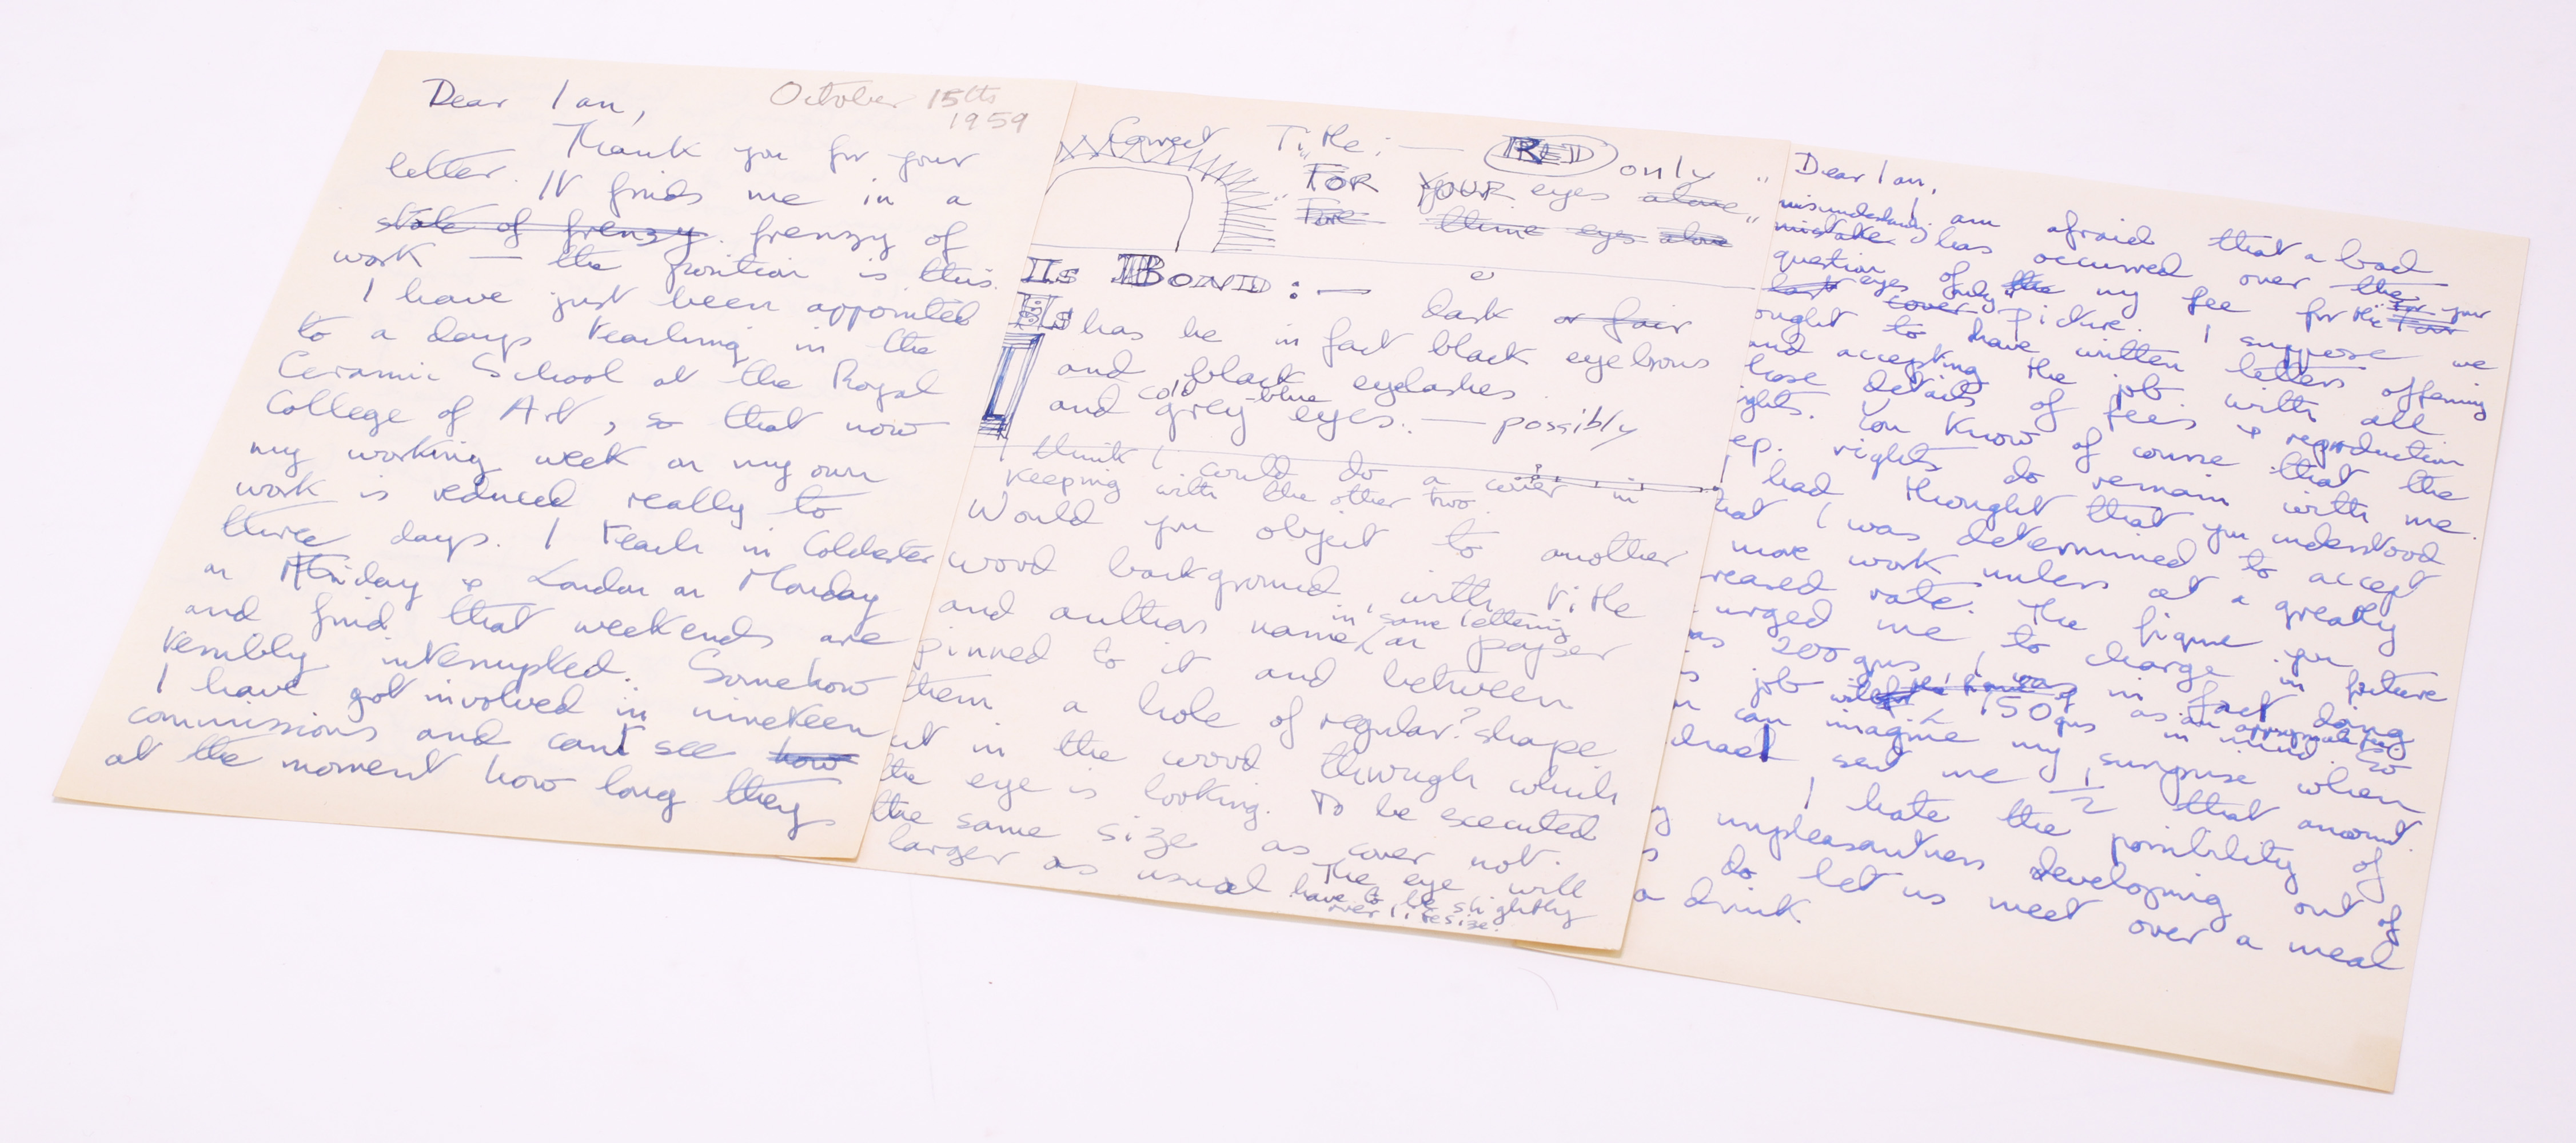 Dear Ian,
October 15th
1959
Thank you for your
letter. It finds me in a
state of frenzy. frenzy of
work — the position is this.
I have just been appointed
to a days teaching in the
Ceramic School at the Royal
College of Art, so that now
my working week on my own
work is reduced really to
three days. I teach in Colchester
on Friday & London on Monday
and find that weekends are
terribly interrupted. Somehow
I have got involved in nineteen
commissions and cant see how
at the moment how long they
Correct Title: — RED only
"FOR YOUR eyes alone"
"For thine eyes alone
Is BOND: —
Is dark or fair
has he in fact black eyebrows
and black eyelashes
and cold grey-blue eyes. — possibly
I think I could do a cover in
keeping with the other two.
Would you object to another
wood background, with title
and authors name in same lettering on paper
pinned to it and between
them a hole of regular? shape
cut in the wood through which
the eye is looking. To be executed
the same size as cover not
larger as usual. The eye will
have to be slightly
over lifesize.
Dear Ian,
I am afraid that a bad
misunderstanding mistake has occurred over the
question of my fee for the your
eyes only cover picture. I suppose we
ought to have written letters offering
and accepting the job with all
those details of fees & reproduction
rights. You know of course that the
rep. rights do remain with me.
I had thought that you understood
that I was determined to accept
more work unless at a greatly
increased rate. The figure you
urged me to charge in future
was 200 gns, I was in fact doing
job with 150 gns as an approximate fee in mind. So
can imagine my surprise when
sent me ½ that amount.
I hate the possibility of
unpleasantness developing out of
do let us meet over a meal
a drink.